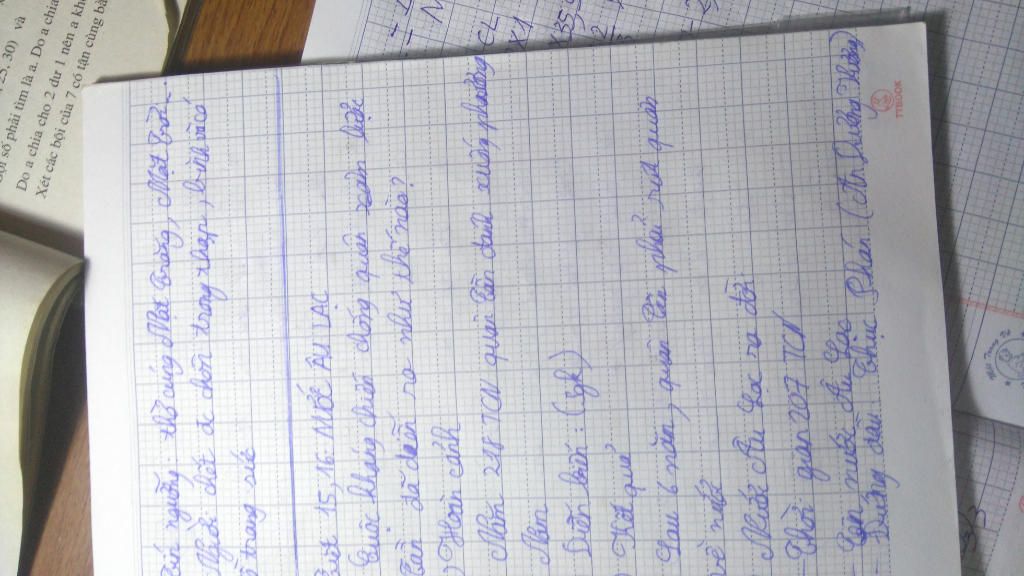 Tín ngưỡng: thờ cúng Mặt Trăng, Mặt Trời...
Người chết dc chôn trong thạp, bình và có
đồ trang sức
Tiết 15, 16: NƯỚC ÂU LẠC
Cuộc kháng chiến chống quân xâm lược
Tần đã diễn ra như thế nào?
) Hoàn cảnh
Năm 218 TCN quân Tần đánh xuống phương
Nam
Diễn biến: (sgk)
) Kết quả
Sau 6 năm, quân Tần phải rút quân
về nước
Nước Âu Lạc ra đời
- Thời gian 207 TCN
- Tên nước: Âu Lạc
- Đứng đầu: Thục Phán (An Dương Vương)
TTBOOK
25, 30) và
số phải tìm là a. Do a chia
Do a chia cho 2 dư 1 nên a
Xét các bội của 7 có tận cùng